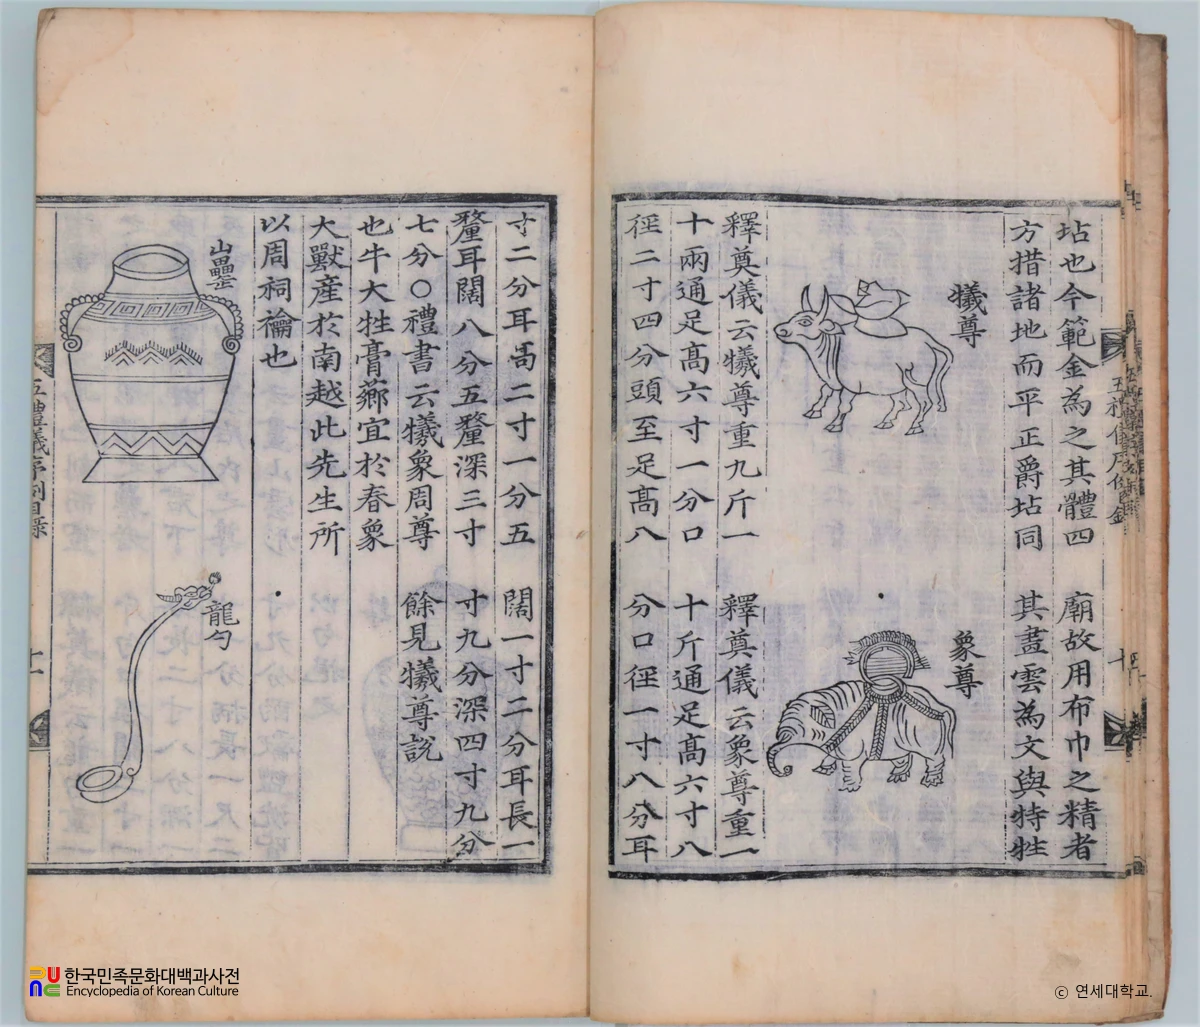 坫也今範金為之其體四
方措諸地而平正爵坫同
犧尊
釋奠儀云犧尊重九斤一
十兩通足髙六寸一分口
徑二寸四分頭至足髙八
廟故用布巾之精者
其畫雲為文與特牲
象尊
釋奠儀云象尊重一
十斤通足髙六寸八
分口徑一寸八分耳
寸二分耳髙二寸一分五
釐耳闊八分五釐深三寸
七分○禮書云犧象周尊
也牛大牲膏薌宜於春象
大獸産於南越此先生所
以周祠禴也
山罍
闊一寸二分耳長一
寸九分深四寸九分
餘見犧尊說
龍勺
五禮儀序例目録
한국민족문화대백과사전
Encyclopedia of Korean Culture
ⓒ 연세대학교.